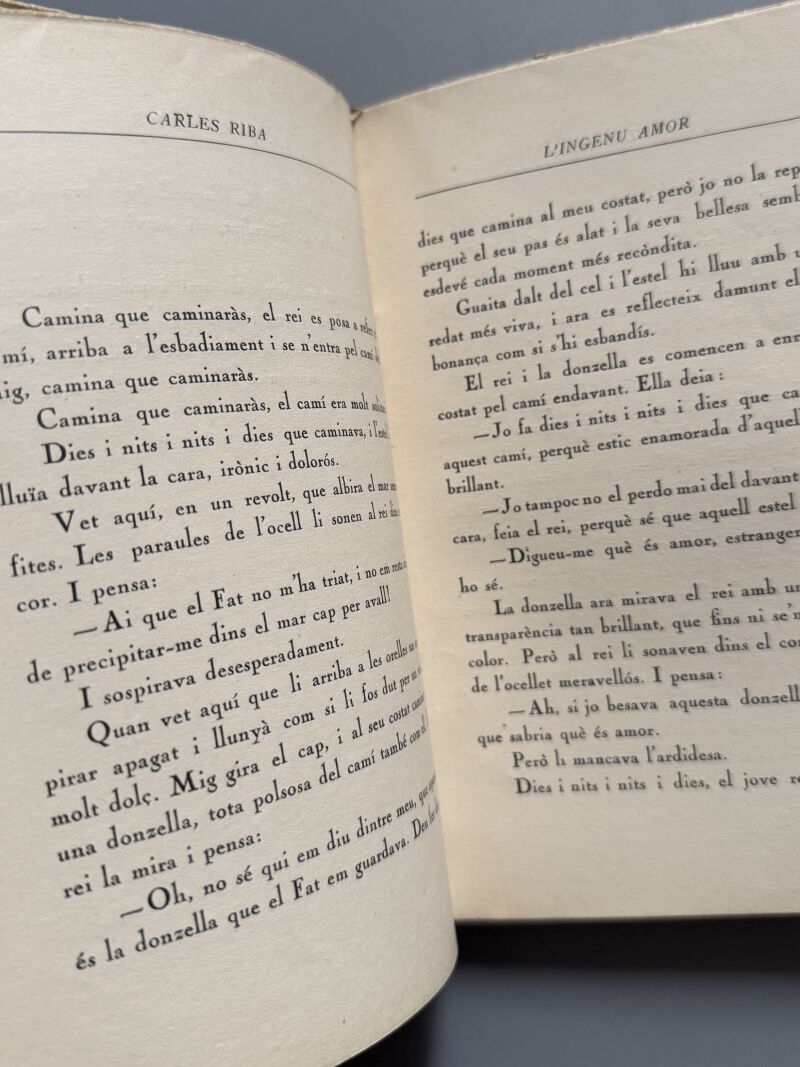 CARLES RIBA
Camina que caminaràs, el rei es posa a
mí, arriba a l'esbadiament i se n'entra pel camí
ig, camina que caminaràs.
Camina que caminaràs, el camí era molt
Dies i nits i nits i dies que caminava, i l'estel
lluïa davant la cara, irònic i dolorós.
Vet aquí, en un revolt, que albira el mar
fites. Les paraules de l'ocell li sonen al rei dins
cor. I pensa:
—Ai que el Fat no m'ha triat, i no em resta
de precipitar-me dins el mar cap per avall!
I sospirava desesperadament.
Quan vet aquí que li arriba a les orelles un
pirar apagat i llunyà com si li fos dut per un
molt dolç. Mig gira el cap, i al seu costat
una donzella, tota polsosa del camí també com ell.
rei la mira i pensa:
—Oh, no sé qui em diu dintre meu, que
és la donzella que el Fat em guardava. Deu
L'INGENU AMOR
dies que camina al meu costat, però jo no la rep
perquè el seu pas és alat i la seva bellesa semb
esdevé cada moment més recòndita.
Guaita dalt del cel i l'estel hi lluu amb u
redat més viva, i ara es reflecteix damunt el
bonança com si s'hi esbandís.
El rei i la donzella es comencen a enr
costat pel camí endavant. Ella deia:
—Jo fa dies i nits i nits i dies que ca
aquest camí, perquè estic enamorada d'aquell
brillant.
—Jo tampoc no el perdo mai del davant
cara, feia el rei, perquè sé que aquell estel
—Digueu-me què és amor, estranger
ho sé.
La donzella ara mirava el rei amb un
transparència tan brillant, que fins ni se'n
color. Però al rei li sonaven dins el cor
de l'ocellet meravellós. I pensa:
—Ah, si jo besava aquesta donzell
que sabria què és amor.
Però li mancava l'ardidesa.
Dies i nits i nits i dies, el jove re